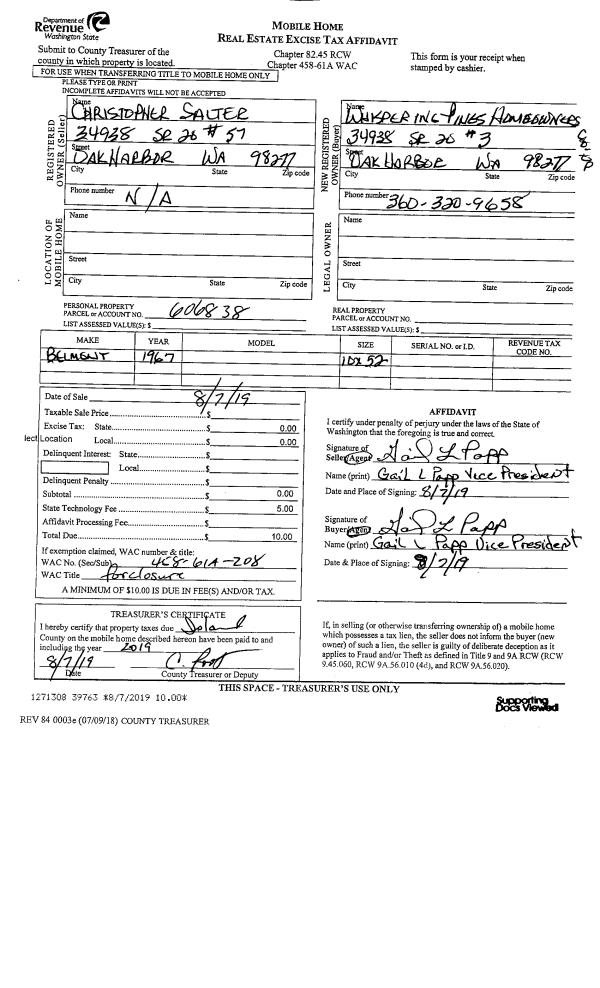 Department of
Revenue
Washington State
MOBILE HOME
REAL ESTATE EXCISE TAX AFFIDAVIT
Submit to County Treasurer of the
county in which property is located.
Chapter 82.45 RCW
Chapter 458-61A WAC
This form is your receipt when
stamped by cashier.
FOR USE WHEN TRANSFERRING TITLE TO MOBILE HOME ONLY
PLEASE TYPE OR PRINT
INCOMPLETE AFFIDAVITS WILL NOT BE ACCEPTED
REGISTERED OWNER (Seller)
Name
CHRISTOPHER SALTER
34938 SR 20 # 57
Street
OAK HARBOR WA 98277
City State Zip code
Phone number N/A
NEW REGISTERED OWNER (Buyer)
Name
WHISPERING PINES HOMEOWNERS
34938 SR 20 # 3
Street
OAK HARBOR WA 98277
City State Zip code
Phone number 360-320-9658
LOCATION OF MOBILE HOME
Name
Street
City State Zip code
LEGAL OWNER
Name
Street
City State Zip code
PERSONAL PROPERTY
PARCEL or ACCOUNT NO. 606838
LIST ASSESSED VALUE(S): $
REAL PROPERTY
PARCEL or ACCOUNT NO.
LIST ASSESSED VALUE(S): $
MAKE YEAR MODEL SIZE SERIAL NO. or I.D. REVENUE TAX CODE NO.
BELMONT 1967 10X52
Date of Sale 8/7/19
Taxable Sale Price $
Excise Tax: State $ 0.00
lect Location Local $ 0.00
Delinquent Interest: State $
Local $
Delinquent Penalty $
Subtotal $ 0.00
State Technology Fee $ 5.00
Affidavit Processing Fee $
Total Due $ 10.00
If exemption claimed, WAC number & title:
WAC No. (Sec/Sub) 458-61A-208
WAC Title forclosure
A MINIMUM OF $10.00 IS DUE IN FEE(S) AND/OR TAX.
AFFIDAVIT
I certify under penalty of perjury under the laws of the State of
Washington that the foregoing is true and correct.
Signature of
Seller/Agent Gail L Papp
Name (print) Gail L Papp Vice President
Date and Place of Signing: 8/7/19
Signature of
Buyer/Agent Gail L Papp
Name (print) Gail L Papp Vice President
Date & Place of Signing: 8/7/19
TREASURER'S CERTIFICATE
I hereby certify that property taxes due Island
County on the mobile home described hereon have been paid to and
including the year 2019
8/7/19
Date County Treasurer or Deputy
If, in selling (or otherwise transferring ownership of) a mobile home
which possesses a tax lien, the seller does not inform the buyer (new
owner) of such a lien, the seller is guilty of deliberate deception as it
applies to Fraud and/or Theft as defined in Title 9 and 9A RCW (RCW
9.45.060, RCW 9A.56.010 (4d), and RCW 9A.56.020).
THIS SPACE - TREASURER'S USE ONLY
1271308 39763 *8/7/2019 10.00*
Supporting
Docs Viewed
REV 84 0003e (07/09/18) COUNTY TREASURER